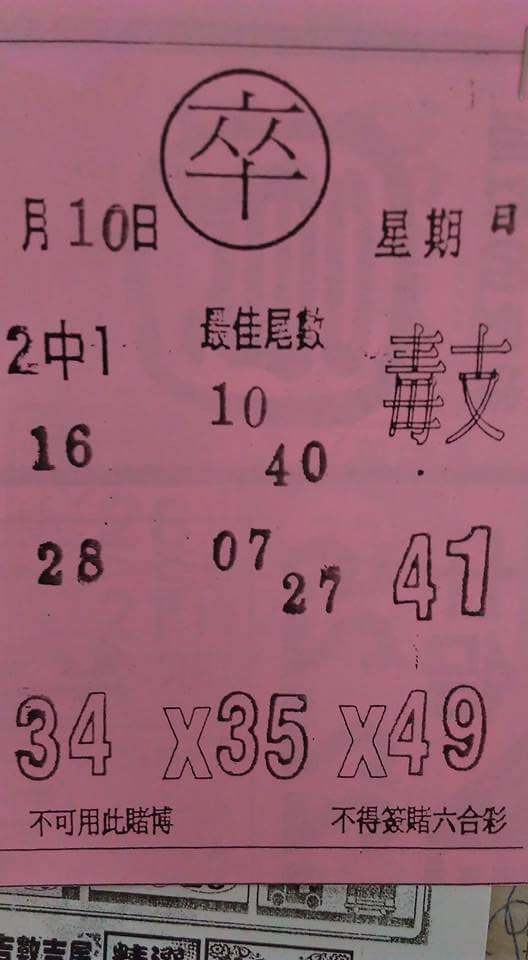 卒
月10日 星期日
2中1 最佳尾數
16 10
40
28 07
27 41
34 X35 X49
不可用此賭博 不得簽賭六合彩